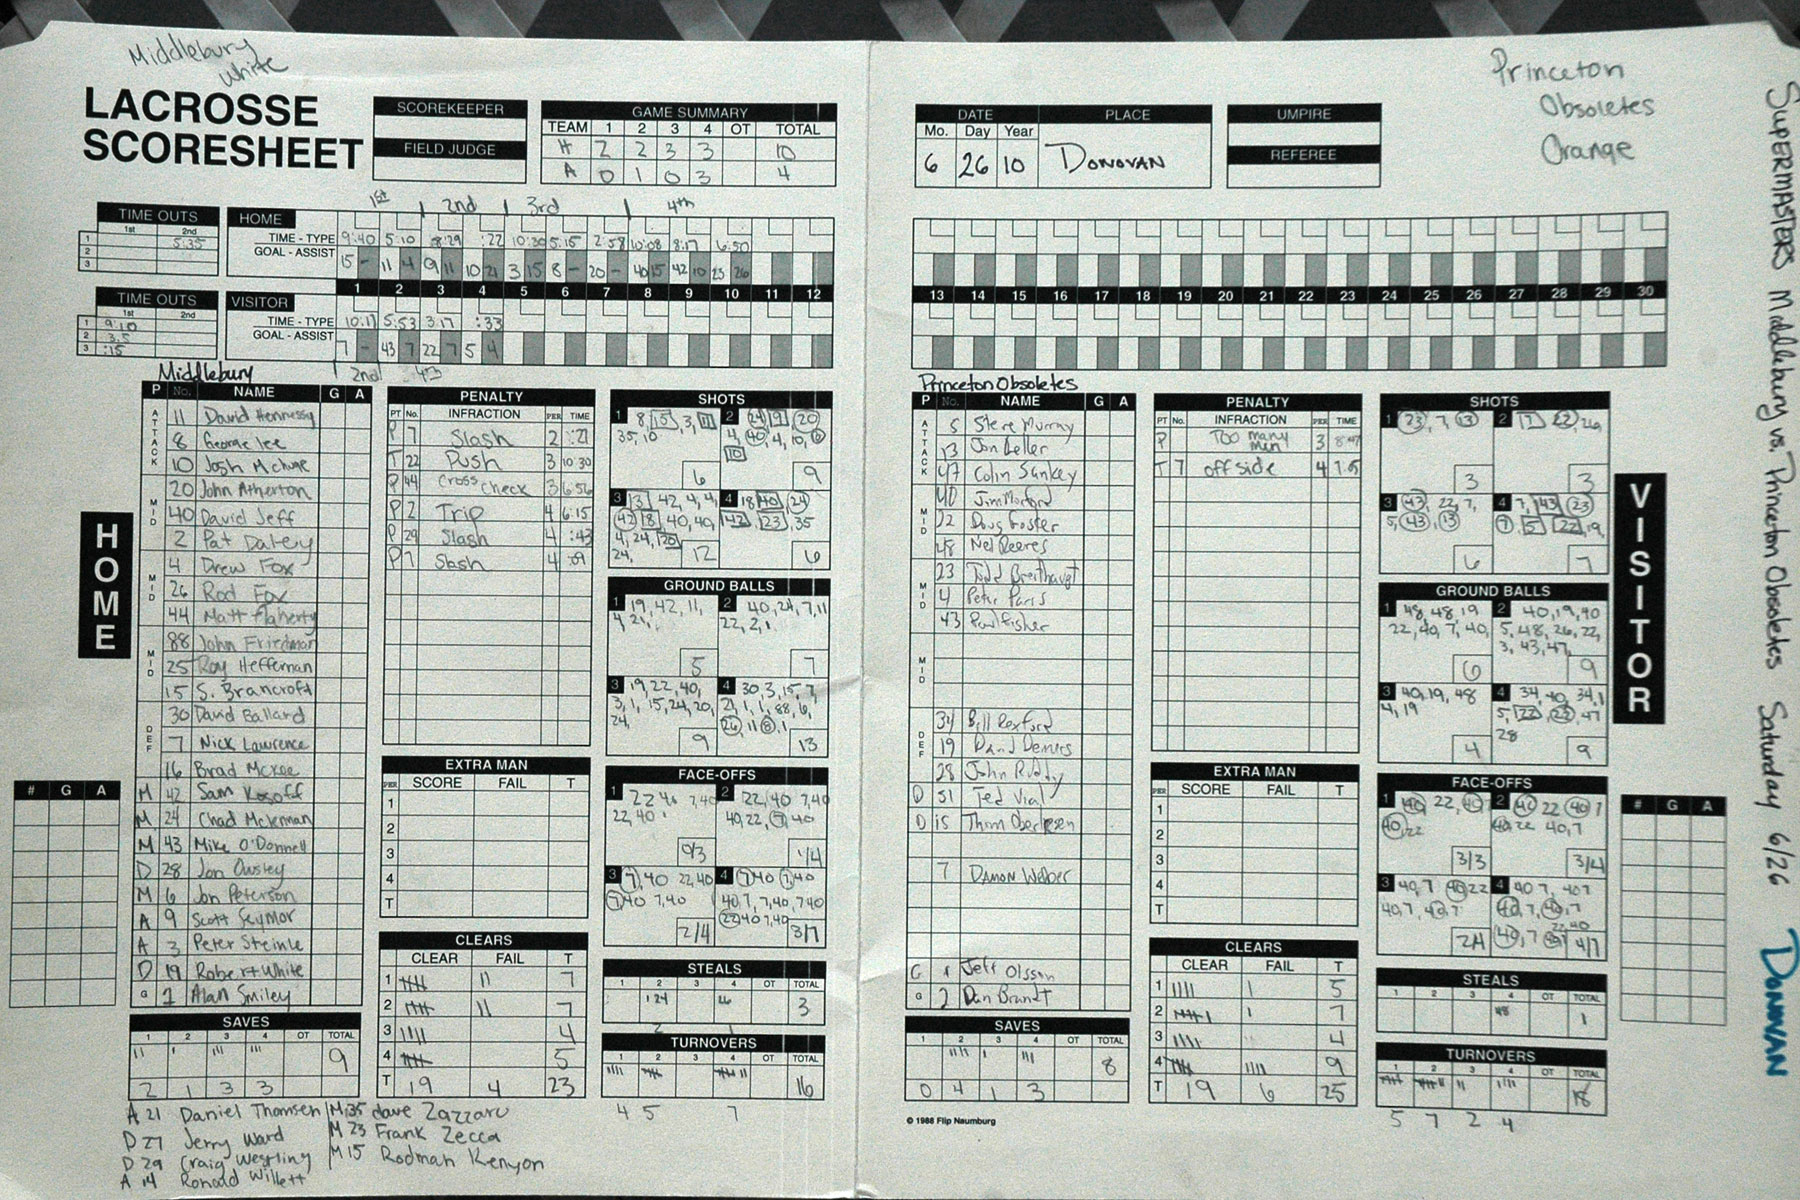 Middlebury
White
LACROSSE
SCORESHEET
SCOREKEEPER
FIELD JUDGE
GAME SUMMARY
TEAM 1 2 3 4 OT TOTAL
H 2 2 3 3 10
A 0 1 0 3 4
DATE PLACE
Mo. Day Year
6 26 10 DONOVAN
UMPIRE
REFEREE
Princeton
Obsoletes
Orange
SUPERMASTERS Middlebury vs. Princeton Obsoletes Saturday 6/26 DONOVAN
1st 2nd 3rd 4th
TIME OUTS
1st 2nd
1 5:35
2
3
HOME
TIME - TYPE 9:40 5:10 8:29 :22 10:30 5:15 2:58 10:08 8:17 6:50
GOAL - ASSIST 15 - 11 4 9 11 10 21 3 15 8 - 20 - 40 15 42 10 23 26
1 2 3 4 5 6 7 8 9 10 11 12
13 14 15 16 17 18 19 20 21 22 23 24 25 26 27 28 29 30
TIME OUTS
1st 2nd
1 9:10
2
3 :15
VISITOR
TIME - TYPE 10:11 5:53 3:17 :33
GOAL - ASSIST 7 - 43 7 22 7 5 4
2nd 4th
Middlebury
P No. NAME G A
ATTACK
11 David Hennessy
8 George Lee
10 Josh McIntyre
MID
20 John Atherton
40 David Jeff
2 Pat Daley
MID
4 Drew Fox
26 Rod Fox
44 Matt Flaherty
MID
88 John Friedman
25 Roy Heffernan
15 S. Brancroft
DEF
30 David Ballard
7 Nick Lawrence
16 Brad McKee
M 42 Sam Kosoff
M 24 Chad McKennan
M 43 Mike O'Donnell
D 28 Jon Owsley
M 6 Jon Peterson
A 9 Scott Seymor
A 3 Peter Steinle
D 19 Robert White
G 1 Alan Smiley
HOME
# G A
PENALTY
PT No. INFRACTION PER TIME
P 7 Slash 2 :21
T 22 Push 3 10:30
P 44 Cross check 3 6:56
P 2 Trip 4 6:15
P 29 Slash 4 :43
P 7 Slash 4 :09
EXTRA MAN
PER SCORE FAIL T
1
2
3
4
T
CLEARS
CLEAR FAIL T
1 7
2 7
3 4
4 5
T 19 4 23
SHOTS
1 8, 15, 3, 11
35, 10
6
2 24, 9, 20
4, 40, 4, 10, 8
10
9
3 3, 42, 4, 4,
42, 8, 40, 40,
4, 24, 20
24,
12
4 18, 40, 24
42, 23, 35
6
GROUND BALLS
1 19, 42, 11,
4, 21,
5
2 40, 24, 7, 11
22, 2, 1
7
3 19, 22, 40,
3, 1, 15, 24, 20,
24,
9
4 30, 3, 15, 7,
21, 1, 1, 88, 6,
26, 11, 8, 1
13
FACE-OFFS
1 22 40 7, 40
22, 40
0/3
2 22, 40 7, 40
40, 22, 7, 40
1/4
3 7, 40 22, 40
7, 40 7, 40
2/4
4 7, 40 7, 40
40, 7, 7, 40, 7, 40
22, 40 7, 40
3/7
STEALS
1 2 3 4 OT TOTAL
3
2 1
TURNOVERS
1 2 3 4 OT TOTAL
16
4 5 7
SAVES
1 2 3 4 OT TOTAL
9
2 1 3 3
A 21 Daniel Thomsen
D 27 Jerry Ward
D 29 Craig Westling
A 14 Ronald Willett
M 35 Dave Zazzaro
M 23 Frank Zecca
M 15 Rodman Kenyon
Princeton Obsoletes
P No. NAME G A
ATTACK
5 Steve Murray
13 Jon Beller
47 Colin Sankey
MID
40 Jim Morford
22 Doug Foster
48 Ned Reeres
MID
23 Todd Breithaupt
4 Peter Paris
43 Paul Fisher
MID
DEF
34 Bill Rexford
19 David Demers
28 John Ruddy
D 51 Ted Vial
D 15 Thom
7 Damon Webber
G 1 Jeff Olsson
G 2 Dan Brandt
PENALTY
PT No. INFRACTION PER TIME
P Too many men 3 8:47
T 7 offside 4
EXTRA MAN
PER SCORE FAIL T
1
2
3
4
T
CLEARS
CLEAR FAIL T
1 5
2 7
3 4
4 9
T 19 6 25
SAVES
1 2 3 4 OT TOTAL
8
0 4 1 3
© 1988 Flip Naumburg
SHOTS
1 23, 7, 13
3
2 7, 22, 26,
3
3 43, 22, 7,
5, 43, 13
6
4 7, 43, 23
7, 5, 22, 19
7
GROUND BALLS
1 48, 48, 19
22, 40, 7, 40,
6
2 40, 19, 40
5, 48, 26, 22,
3, 43, 47,
9
3 40, 19, 48
4, 19
4
4 34, 40, 34, 1
5, 22, 22, 47
28
9
FACE-OFFS
1 40, 22, 40, 7
40, 22
3/3
2 40, 22 40, 7
40, 22 40, 7
3/4
3 40, 7 40, 22
40, 7, 40, 7
2/4
4 40 7, 40 7
40, 7, 40, 7
22, 40
40, 7
4/7
STEALS
1 2 3 4 OT TOTAL
48 1
TURNOVERS
1 2 3 4 OT TOTAL
18
5 7 2 4
VISITOR
# G A